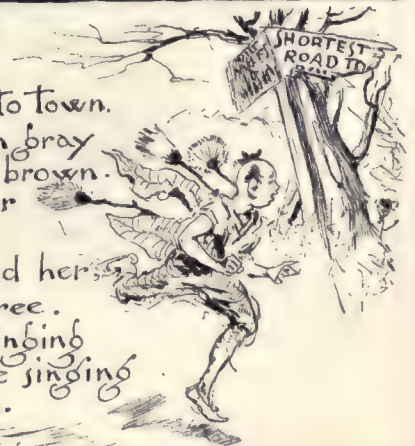 SHORTEST
ROAD TO
to town.
gray
brown.
r
d her,
ree.
nging
e singing
.